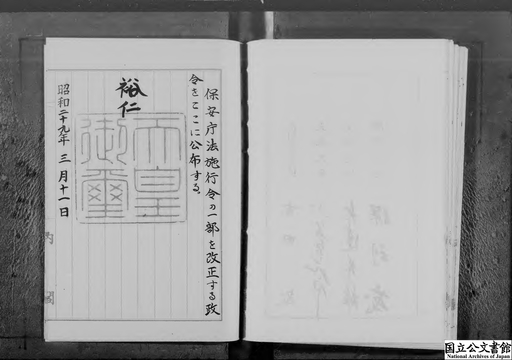 保安庁法施行令の一部を改正する政
令をここに公布する。
裕仁
天皇
御璽
昭和二十九年三月十一日
内閣
国立公文書館
National Archives of Japan